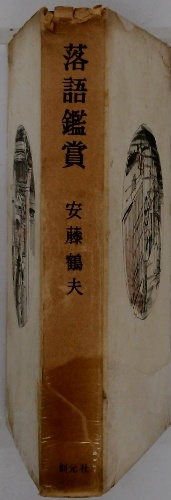 落語鑑賞
安藤鶴夫
創元社